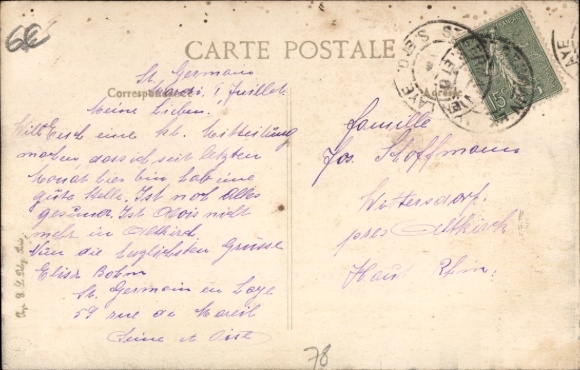 6€
CARTE POSTALE
St. Germain
Mardi 1 Juillet
Correspondance
Meine Lieben.
Will Euch eine kl. Mitteilung
machen dass ich seit letzten
Monat hier bin hab eine
gute Stelle. Ist noch Alles
gesund. Ist Alois nicht
mehr in Altkirch
Nun die herzlichsten Grüsse
Elise Bohm
St. Germain en Laye
59 rue de Mareil
Seine et Oise
Adresse
15
famille
Jos. Hoffmann
Wittersdorf
près Altkirch
Haut Rhin.
78